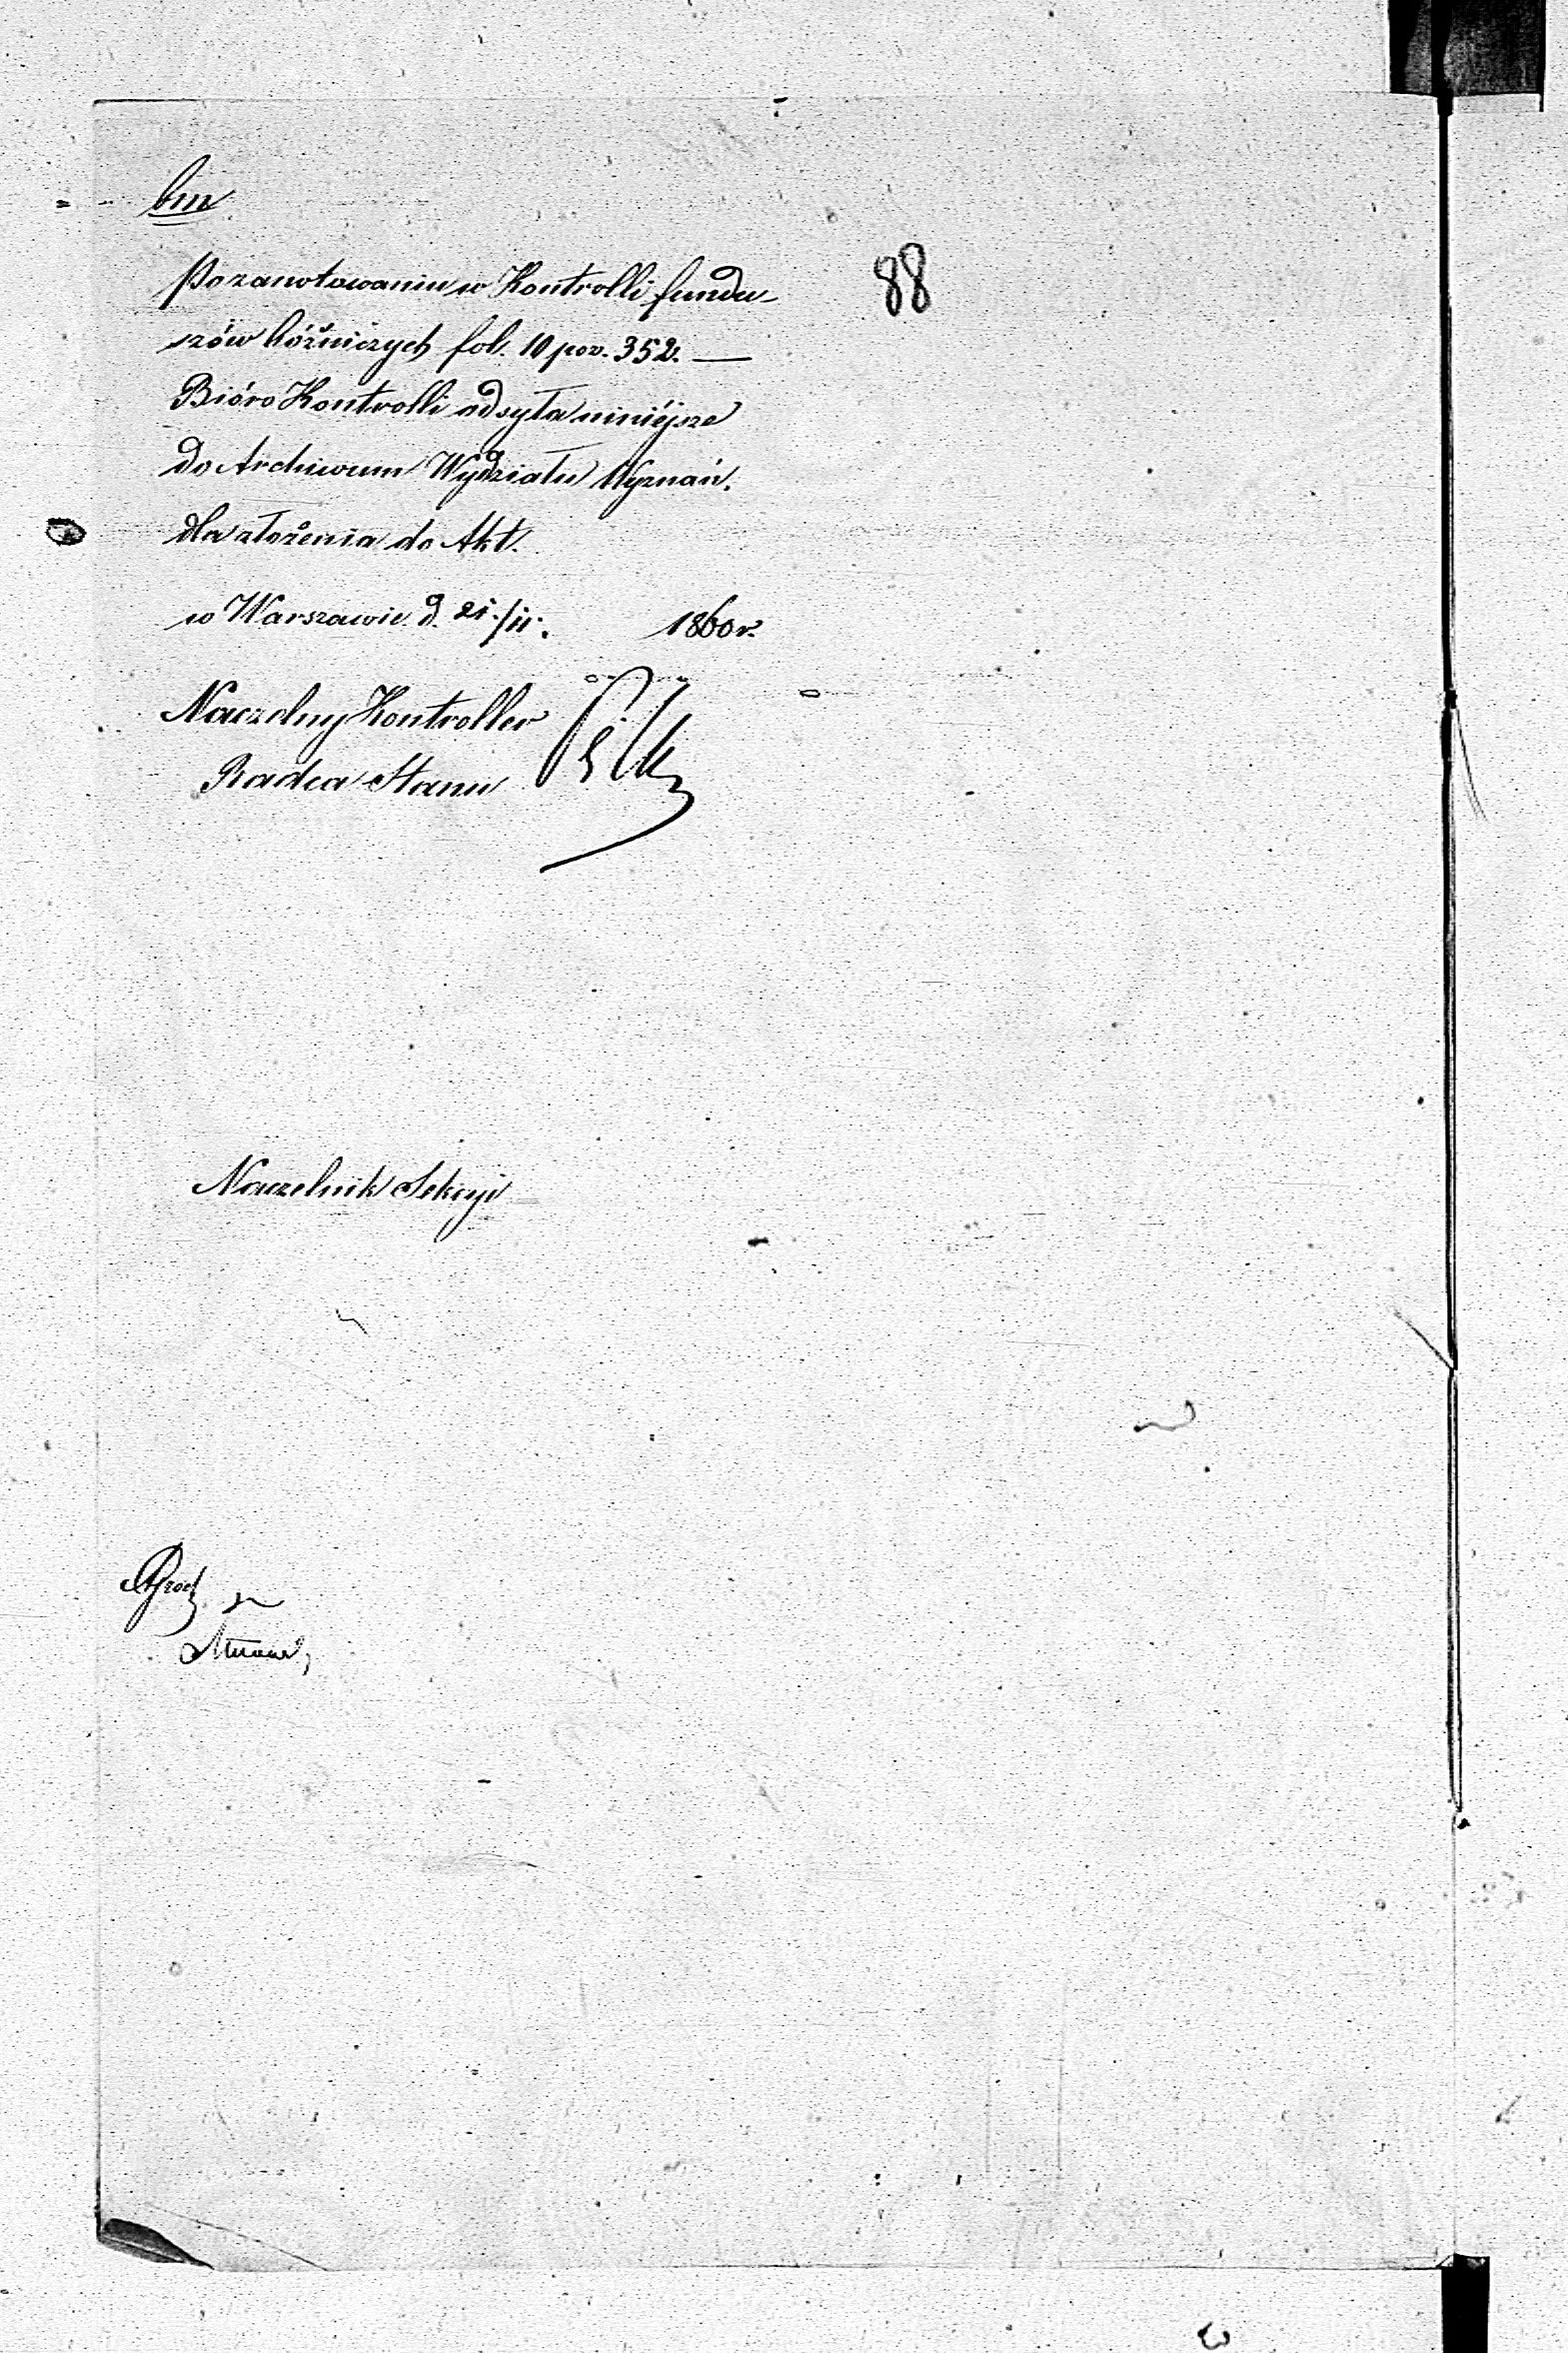 bm
88
Po zanotowaniu w Kontrolli fundu-
szów bóżniczych fol. 10 poz. 352. —
Bióro Kontrolli odsyła niniéjsze
do Archiwum Wydziału Wyznań.
dla złożenia do Akt.
w Warszawie d. 21/11. 1860 r.
Naczelny Kontroller
Radca Stanu
Naczelnik Sekcyi